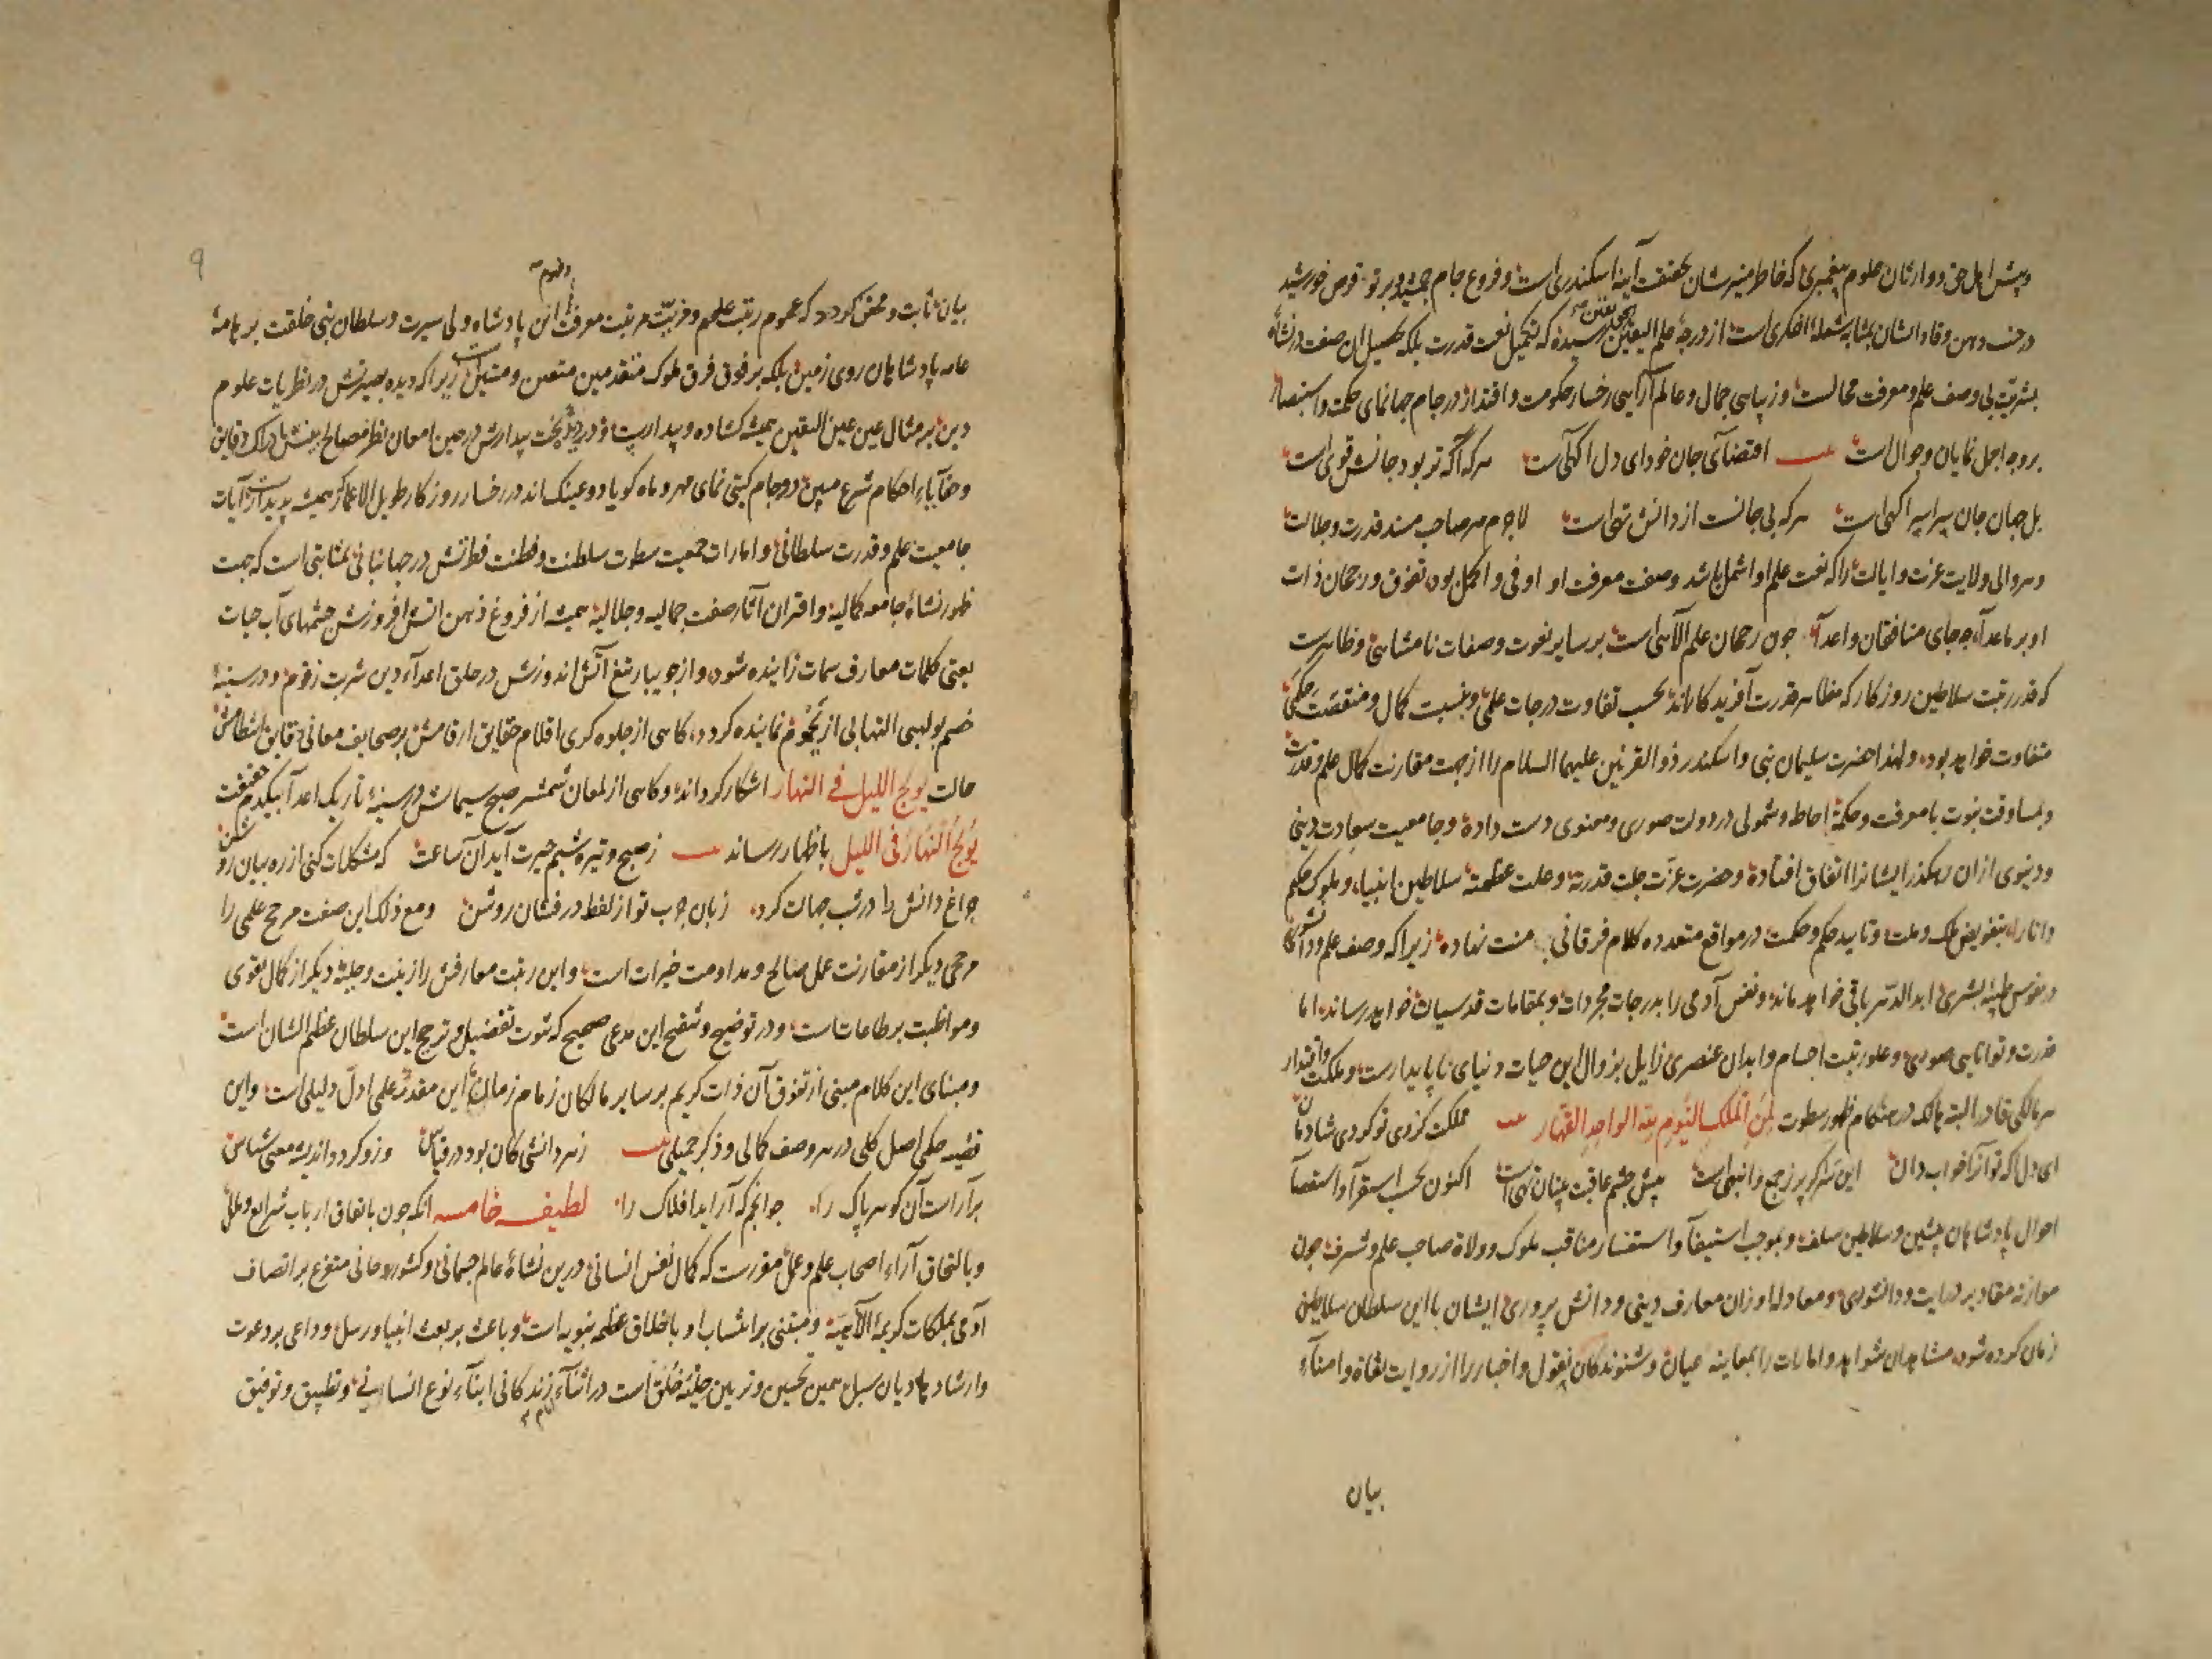 وپیش اهل حق و وارثان علوم پیغمبری که خاطر منیرشان بحقیقت آینه اسکندری است و فروغ جام جمشید و پرتو قرص خورشید
در جنب ذهن وقاد ایشان بمثابه شعله اخگری است از درجه علم الیقین رسیده که تکمیل نعت قدرت بلکه تحصیل این صفت در نشأه
بشریت بی وصف علم و معرفت محالست و زیبایی جمال و عالم آرایی رخسار حکومت و اقتدار در جام جهانمای حکمت و استبصار
بروجه اجل نمایان و حوال است اقتضای جان خود ای دل آگهی است هرکه آگه تر بود جانش قوی است
بل جهان جان سراسر آگهی است هرکه بی جانست از دانش تهی است لاجرم هر صاحب مسند قدرت و جلالت
و هر والی ولایت عزت و ایالت را که نعت علم او اشمل باشد وصفت معرفت او اوفی و اکمل بود تفوق و رجحان ذات
او بر ماعدا چه جای منافقان و اعدا چون رجحان علم الاهی است بر سایر نعوت وصفات نامتناهی و ظاهرست
که قدر رتبت سلاطین روزکار که مظاهر قدرت آفریدکارند بحسب تفاوت درجات علمی و بنسبت کمال و منقصت حکمی
متفاوت خواهد بود ولهذا حضرت سلیمان نبی و اسکندر ذو القرنین علیهما السلام را از جهت مقارنت کمال علم و قدرت
و مساوقت نبوت با معرفت و حکمة احاطه و شمولی در دولت صوری و معنوی دست داده و جامعیت سعادت دینی
و دنیوی از ان رهکذر ایشانرا اتفاق افتاده و حضرت عزت جلت قدرته وعلت عظمته سلاطین انبیاء و ملوک حکم
دانا را بتفویض ملک و ملت و تایید حکم و حکمت در مواقع متعدده کلام فرقانی منت نهاده زیرا که وصف علم و دانشوری
در نفوس طیبه بشری ابد الدهر باقی خواهد ماند و نفس آدمی را بدرجات مجردات و بمقامات قدسیان خواهد رساند اما
قدرت و توانایی صوری و علو رتبت اجسام و ابدان عنصری زایل بزوال این حیات دنیای ناپایدارست و مملکت و اقتدار
هر مالکی قادر البته هالک در هنکام ظهور سطوت لمن الملک الیوم لله الواحد القهار مملکت کزوی تو کردی شادمان
ای دل که تو آنرا خواب دان این سر کر پر ز جمع وانبهی است پیش چشم عاقبت بینان تهی است اکنون بحسب استقرا و استقصا
احوال پادشاهان پیشین و سلاطین سلف و بموجب استیفا و استفسار مناقب ملوک و ولاة صاحب علم و شرف چون
موازنه مقادیر درایت و دانشوری و معادله اوزان معارف دینی و دانش پروری ایشان با این سلطان سلاطین
زمان کرده شود مشاهدان شواهد و امارات را بمعاینه عیان و شنوندکان نقول و اخبار را از روایت ثقاة و امناء
بیان
۹
بیان ثابت و محقق کردد که عموم رتبت علم و مزیت مرتبت معرفت این پادشاه ولی سیرت و سلطان نبی خلقت بر هامه
عامه پادشاهان روی زمین بلکه بر فوق فرق ملوک متقدمین متعین و متبین است زیرا که دیده بصیرتش در نظریات علوم
دین بر مثال عین عین الیقین همیشه کشاده و بیدارست و بخت بیدارش در حین امعان نظر مصالح بینش بادراک دقایق
و خفایاء احکام شرع مبین دو جام کیتی نمای مهر و ماه کویا دو عینک اند در رخسار روزکار طویل الاعمار که همیشه پدیدارست آیات
جامعیت علم و قدرت سلطانی و امارات جمعیت سطوت سلطنت و فطنت فطرتش در جهانبانی بمثابتی است که جهت
ظهور نشأه جامعه کمالیه و اقتران آثار صفت جمالیه و جلالیه همیشه از فروغ ذهن آتش افروزش چشمهای آب حیات
یعنی کلمات معارف سمات زاینده شود و از جویبار تیغ آتش اندوزش در حلق اعداء دین شربت زقوم و در سینه
خصم بولهبی التهابی از نماینده کردد کاهی از جلوه کری اقلام حقایق ارقامش بر صحایف معانی دقایق انتظامش
حالت یولج اللیل فی النهار اشکار کرداند و کاهی از لمعان شمشیر صبح سیماش در سینه تاریک اعدا بیکدم حقیقت
یولج النهار فی اللیل باظهار رساند ز صبح و تیره شبم حیرت آید آن ساعت که مشکلات کنی از ره بیان روشن
چراغ دانش را در شب جهات کرد زبان چرب تو از لفظ درفشان روشن ومع ذلک این صفت مرجح علمی را
مرجحی دیکر از مقارنت عمل صالح و مداومت خیرات است و این رتبت معارفش را زینت و حلیه دیکر از کمال تقوی
و مواظبت بر طاعات است و در توضیح و تنقیح این مدعی صحیح که ثبوت تفضیل و ترجیح این سلطان عظیم الشان است
و مبنای این کلام مبنی از تفوق آن ذات کریم بر سایر مالکان زمام زمان این مقدمه علمی اول دلیلی است و این
قضیه حکمی اصل کلی در هر وصف کمالی و ذکر جمیلی زهر دانشی کان بود در قیاس وزو کردد اندیشه معنی شناس
برآراست آن کوهر پاک را چو انجم که آراید افلاک را لطیفه خامسه انکه چون باتفاق ارباب شرایع و ملل
و بالتحاق آراء اصحاب علم و عمل مقررست که کمال نفس انسانی درین نشأه عالم جسمانی و کشور روحانی متفرع بر اتصاف
آدمی بملکات کریمه الاهیه و مبتنی بر انتساب او باخلاق عظیمه نبویه است و باعث بر بعث انبیا و رسل و داعی بر دعوت
و ارشاد هادیان سبل همین تحسین و تزیین حلیه خلق است در اثناء زندکانی ابناء نوع انسانی و تطبیق و توفیق